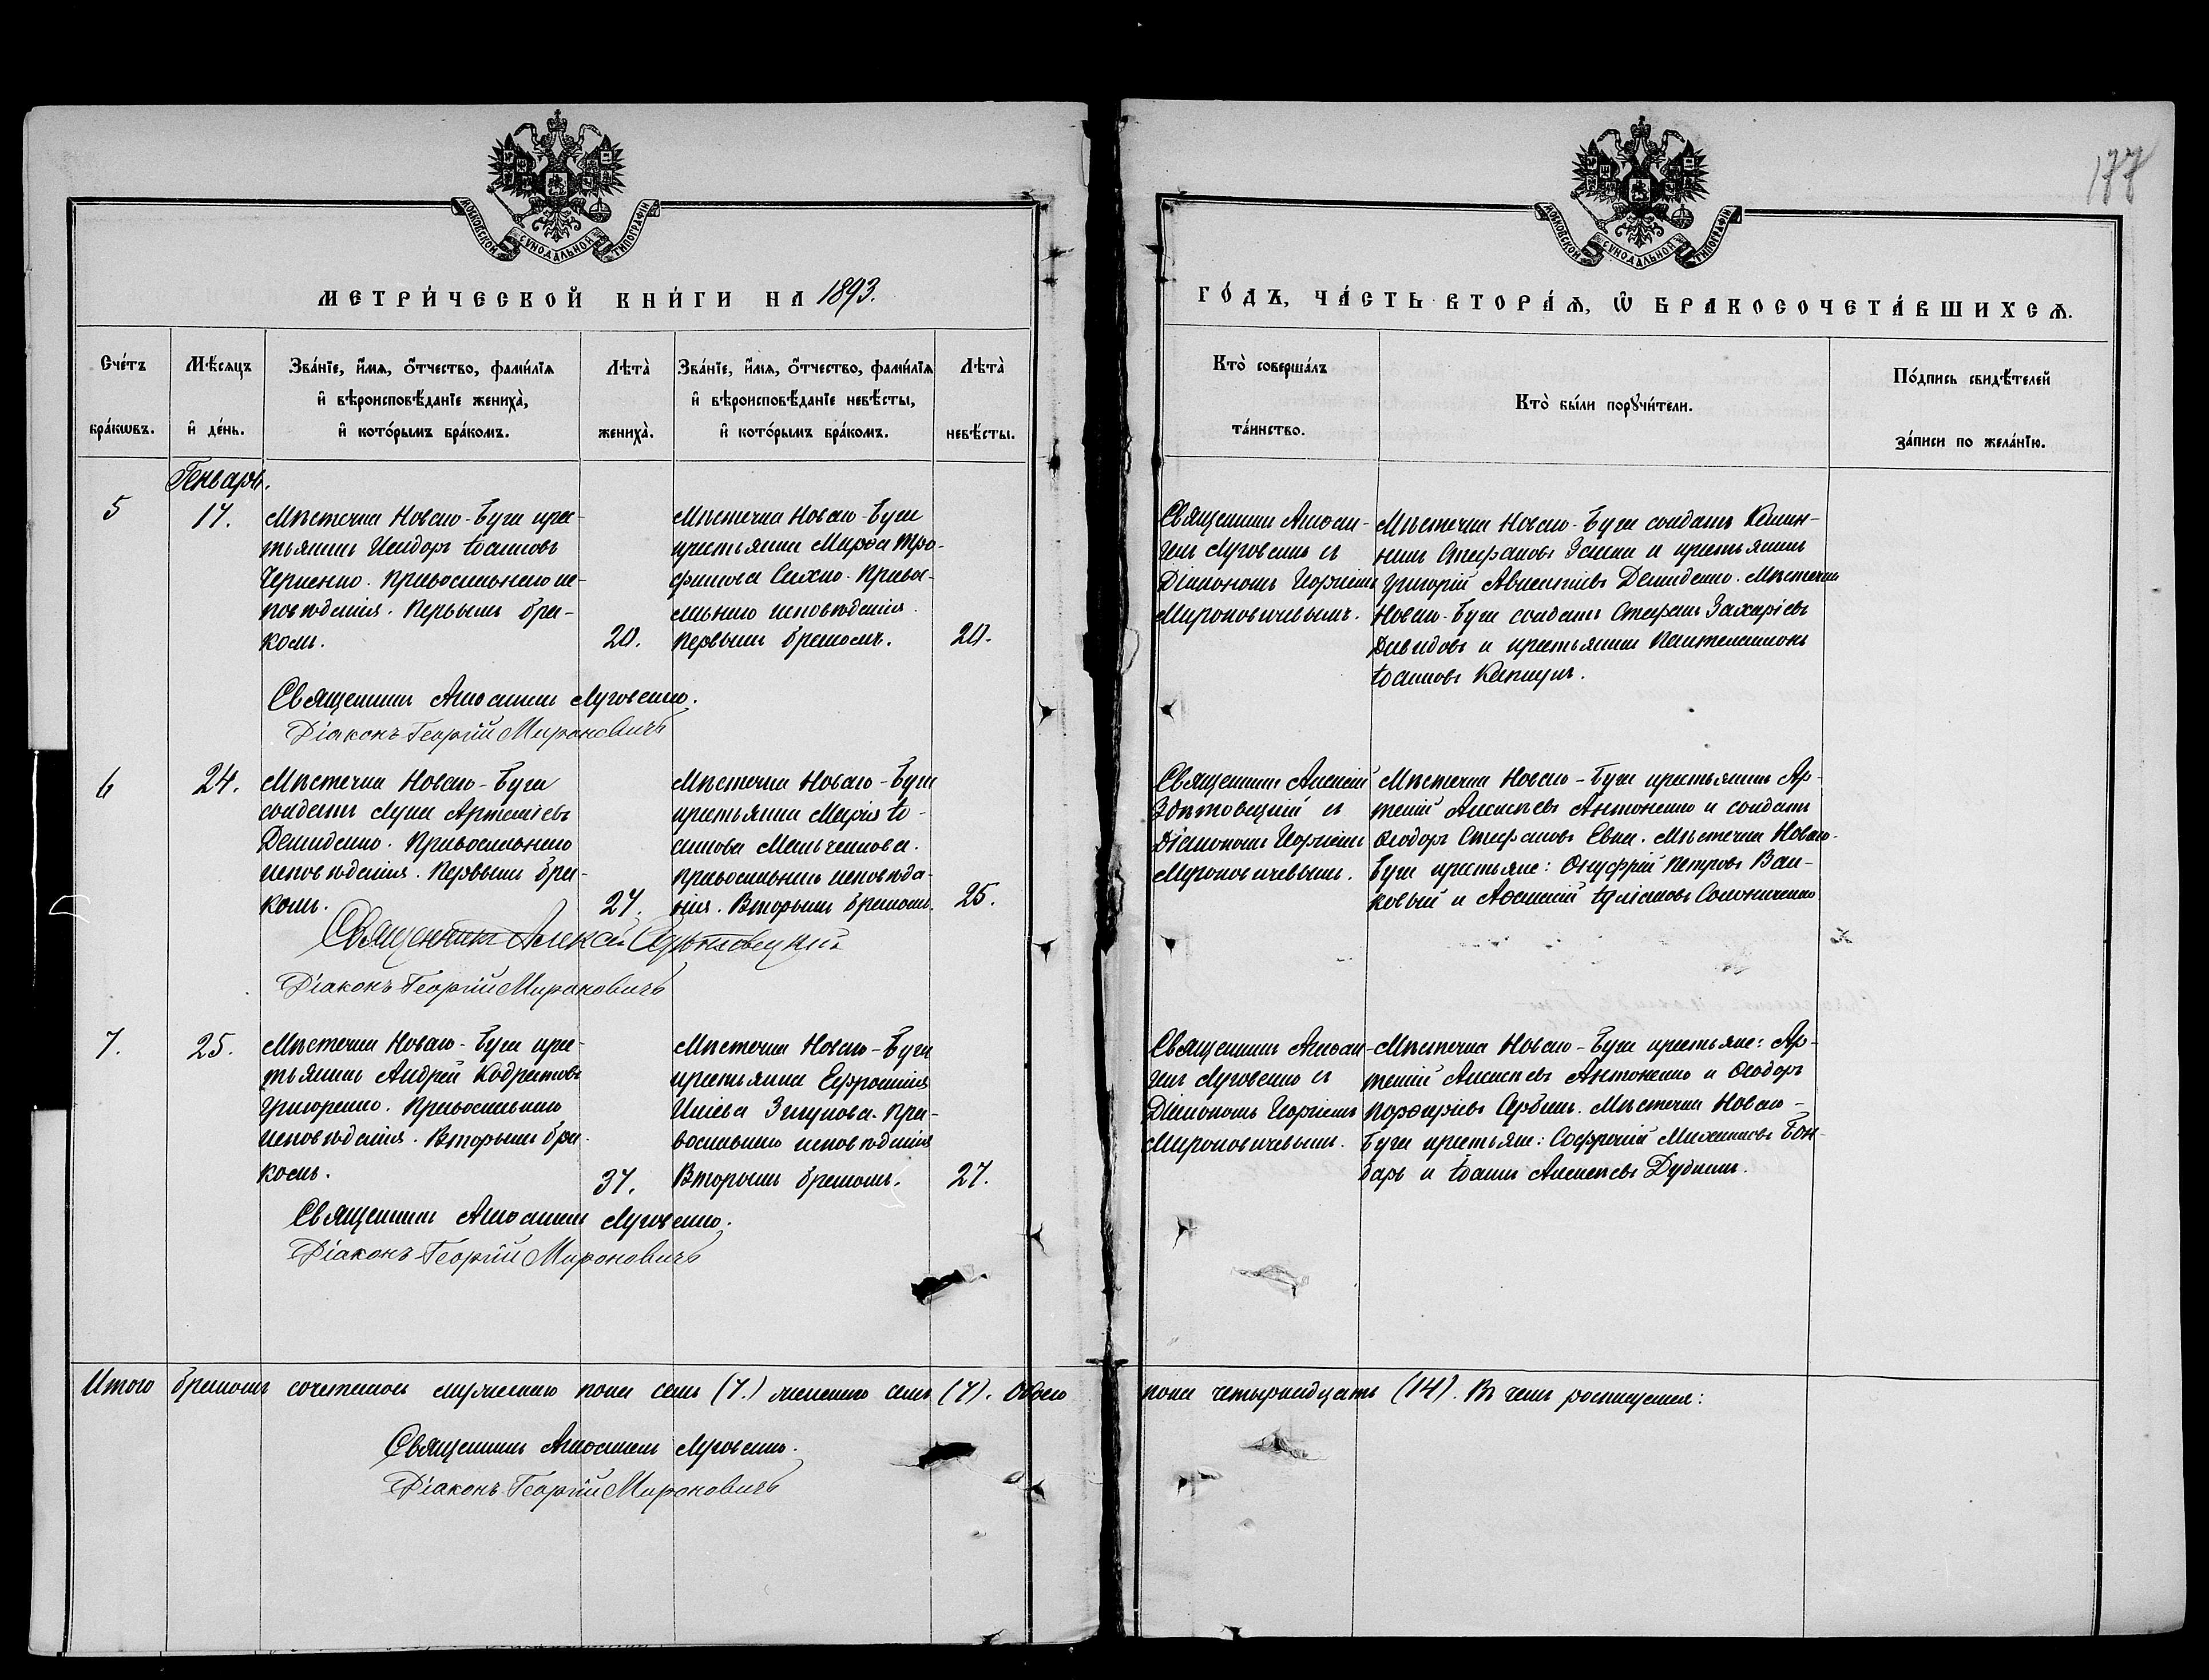 177
МОСКОВСКОЙ СѴНОДАЛЬНОЙ ТИПОГРАФІИ
МОСКОВСКОЙ СѴНОДАЛЬНОЙ ТИПОГРАФІИ
МЕТРИ́ЧЕСКОЙ КНИ́ГИ НА 1893.
ГО́ДЪ, ЧА́СТЬ ВТОРА́Ѧ, Ѡ҆ БРАКОСОЧЕТА́ВШИХСѦ.
Сче́тъ бра́кѡвъ.
Мѣ́сяцъ и҆ де́нь.
Зва́нїе, и҆́мя, ѻ҆́тчество, фами́лїя
и҆ вѣроисповѣ́данїе жениха̀,
и҆ кото́рымъ бра́комъ.
Лѣта̀ жениха̀.
Зва́нїе, и҆́мя, ѻ҆́тчество, фами́лїя
и҆ вѣроисповѣ́данїе невѣ́сты,
и҆ кото́рымъ бра́комъ.
Лѣта̀ невѣ́сты.
Кто̀ соверша́лъ
та́инство.
Кто̀ бы́ли порꙋчи́тели.
По́дпись свидѣ́телей
за́писи по жела́нїю.
Генварь.
5
17.
Мѣстечка Новаго-Буга крес-
тьянинъ Исидоръ Іоанновъ
Черненко. Православнаго ис-
повѣданія. Первымъ бра-
комъ.
20.
Мѣстечка Новаго-Буга
крестьянка Марѳа Тро-
фимова Сихно. Правос-
лавнаго исповѣданія.
Первымъ бракомъ.
20.
Священникъ Аѳана-
сій Луговенко съ
Діакономъ Георгіемъ
Мироновичевымъ.
Мѣстечка Новаго-Буга солдатъ
Стефановъ и крестьянинъ
Григорій Демиденко. Мѣстечка
Новаго-Буга солдатъ Стефанъ Захаріевъ
Давидовъ и крестьянинъ Пантелеимонъ
Іоанновъ
Священникъ Аѳанасій Луговенко.
Діаконъ Георгій Мироновичъ
6
24.
Мѣстечка Новаго-Буга
солдатъ Лука Артеміевъ
Демиденко. Православнаго
исповѣданія. Первымъ бра-
комъ.
27.
Мѣстечка Новаго-Буга
крестьянка Марія Іо-
аннова Мельченкова.
Православнаго исповѣда-
нія. Вторымъ бракомъ.
25.
Священникъ Алексій
съ
Діакономъ Георгіемъ
Мироновичевымъ.
Мѣстечка Новаго-Буга крестьянинъ Ар-
темій Алексѣевъ Антоненко и солдатъ
Ѳеодоръ Стефановъ. Мѣстечка Новаго-
Буга крестьяне: Онуфрій Петровъ Вал-
ковый и Аѳанасій Іуліановъ
Священникъ Алексѣй
Діаконъ Георгій Мироновичъ
7.
25.
Мѣстечка Новаго-Буга крес-
тьянинъ Андрей Кодратовъ
Григоренко. Православнаго
исповѣданія. Вторымъ бра-
комъ.
37.
Мѣстечка Новаго-Буга
крестьянка Ефросинія
Ильева. Пра-
вославнаго исповѣданія
Вторымъ бракомъ.
27.
Священникъ Аѳана-
сій Луговенко съ
Діакономъ Георгіемъ
Мироновичевымъ.
Мѣстечка Новаго-Буга крестьяне: Ар-
темій Алексѣевъ Антоненко и Ѳеодоръ
Порфиріевъ Сербинъ. Мѣстечка Новаго-
Буга крестьяне: Софроній Михаиловъ Бон-
дарь и Іоаннъ Алексѣевъ
Священникъ Аѳанасій Луговенко.
Діаконъ Георгій Мироновичъ
Итого бракомъ сочетались мужескаго пола семь (7.) женскаго семь (7). Обоего пола четырнадцать (14). Въ чемъ росписуемся:
Священникъ Аѳанасій Луговенко.
Діаконъ Георгій Мироновичъ